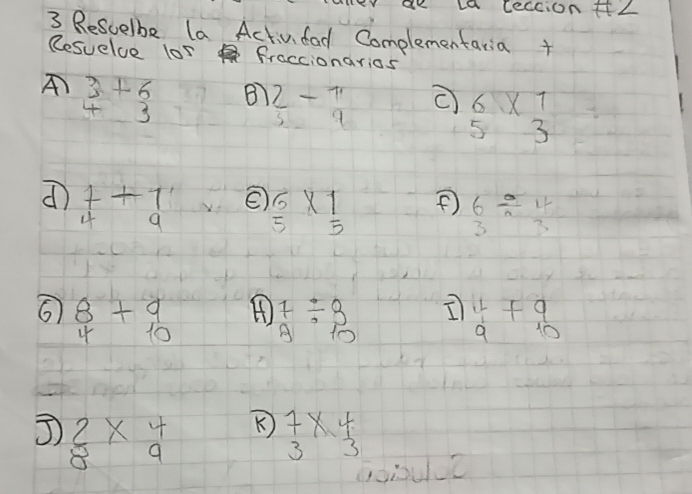 de la leccion #2
3 Resuelbe la Actividad Complementaria +
Resuelve los fraccionarios
A) 3/4 + 6/3 B) 2/3 - 1/9 C) 6/5 X 1/3
d) 7/4 + 1/9 E) 6/5 X 1/5 F) 6/3 ÷ 4/3
G) 8/4 + 9/10 H) 7/8 ÷ 8/10 I) 4/9 + 9/10
J) 2/8 X 4/9 K) 7/3 X 4/3